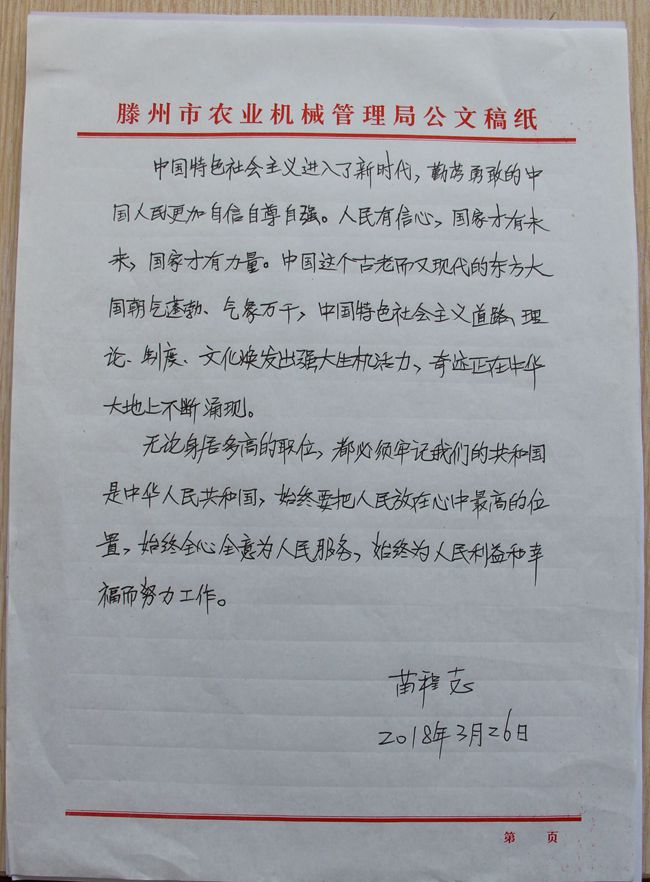 滕州市农业机械管理局公文稿纸
中国特色社会主义进入了新时代,勤劳勇敢的中
国人民更加自信自尊自强。人民有信心,国家才有未
来,国家才有力量。中国这个古老而又现代的东方大
国朝气蓬勃、气象万千,中国特色社会主义道路、理
论、制度、文化焕发出强大生机活力,奇迹正在中华
大地上不断涌现。
无论身居多高的职位,都必须牢记我们的共和国
是中华人民共和国,始终要把人民放在心中最高的位
置,始终全心全意为人民服务,始终为人民利益和幸
福而努力工作。
苗程志
2018年3月26日
第 页